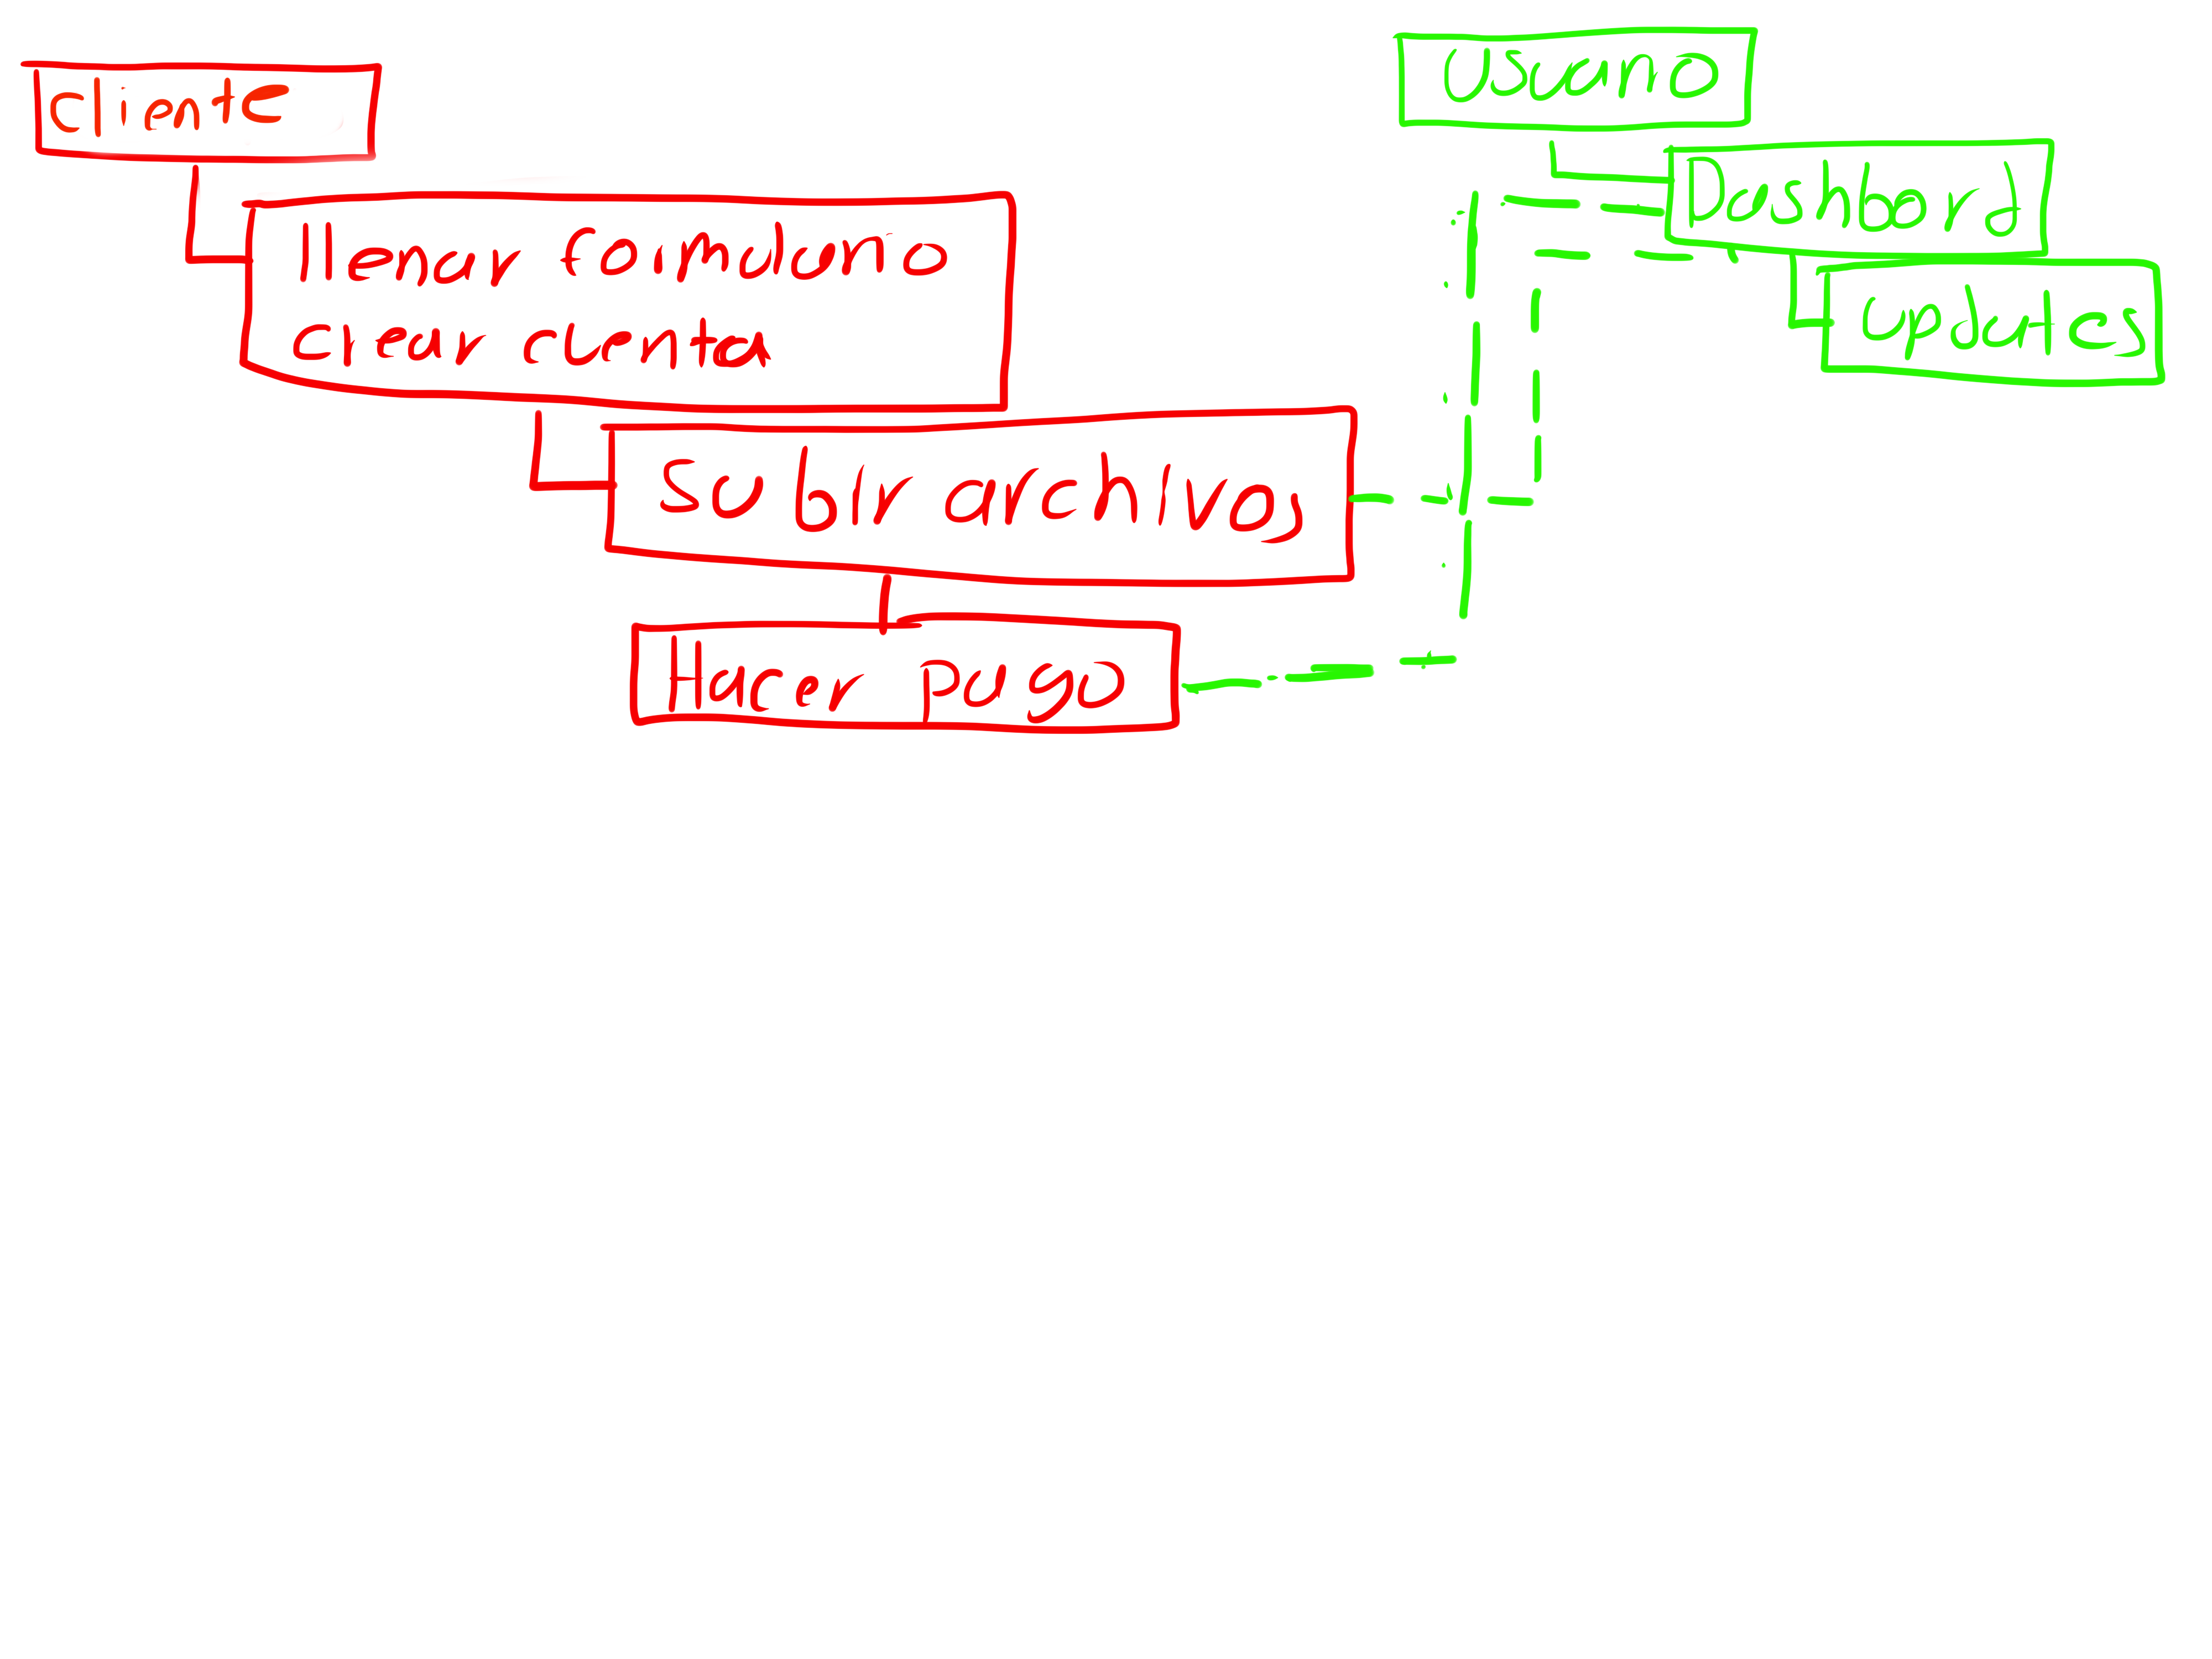 Cliente
llenar formulario
crear cuenta
Subir archivos
Hacer pago
Usuario
Dashbord
updates